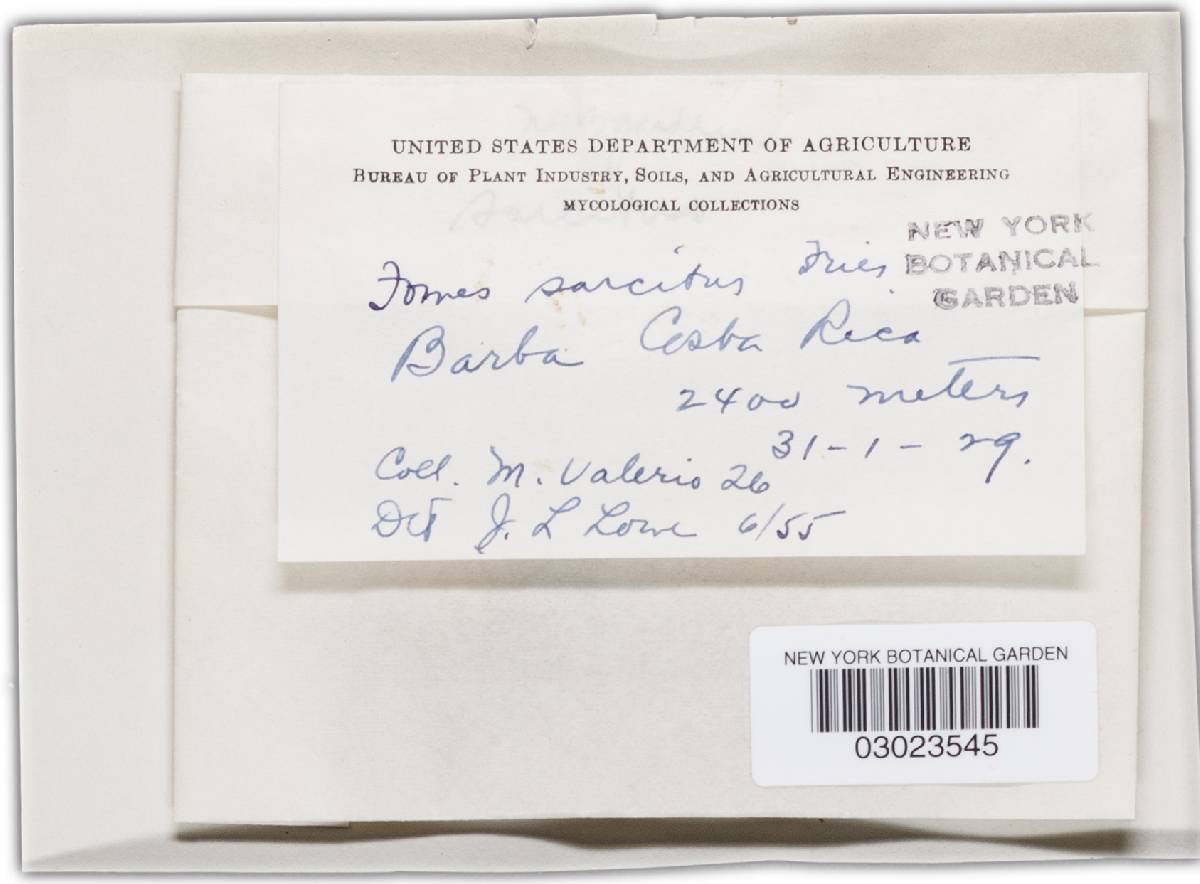 UNITED STATES DEPARTMENT OF AGRICULTURE
BUREAU OF PLANT INDUSTRY, SOILS, AND AGRICULTURAL ENGINEERING
MYCOLOGICAL COLLECTIONS
NEW YORK
BOTANICAL
GARDEN
Fomes sarcitus Fries
Barba Costa Rica
2400 meters
31-1-29.
Coll. M. Valerio 26
Det J. L Lowe 6/55
NEW YORK BOTANICAL GARDEN
03023545